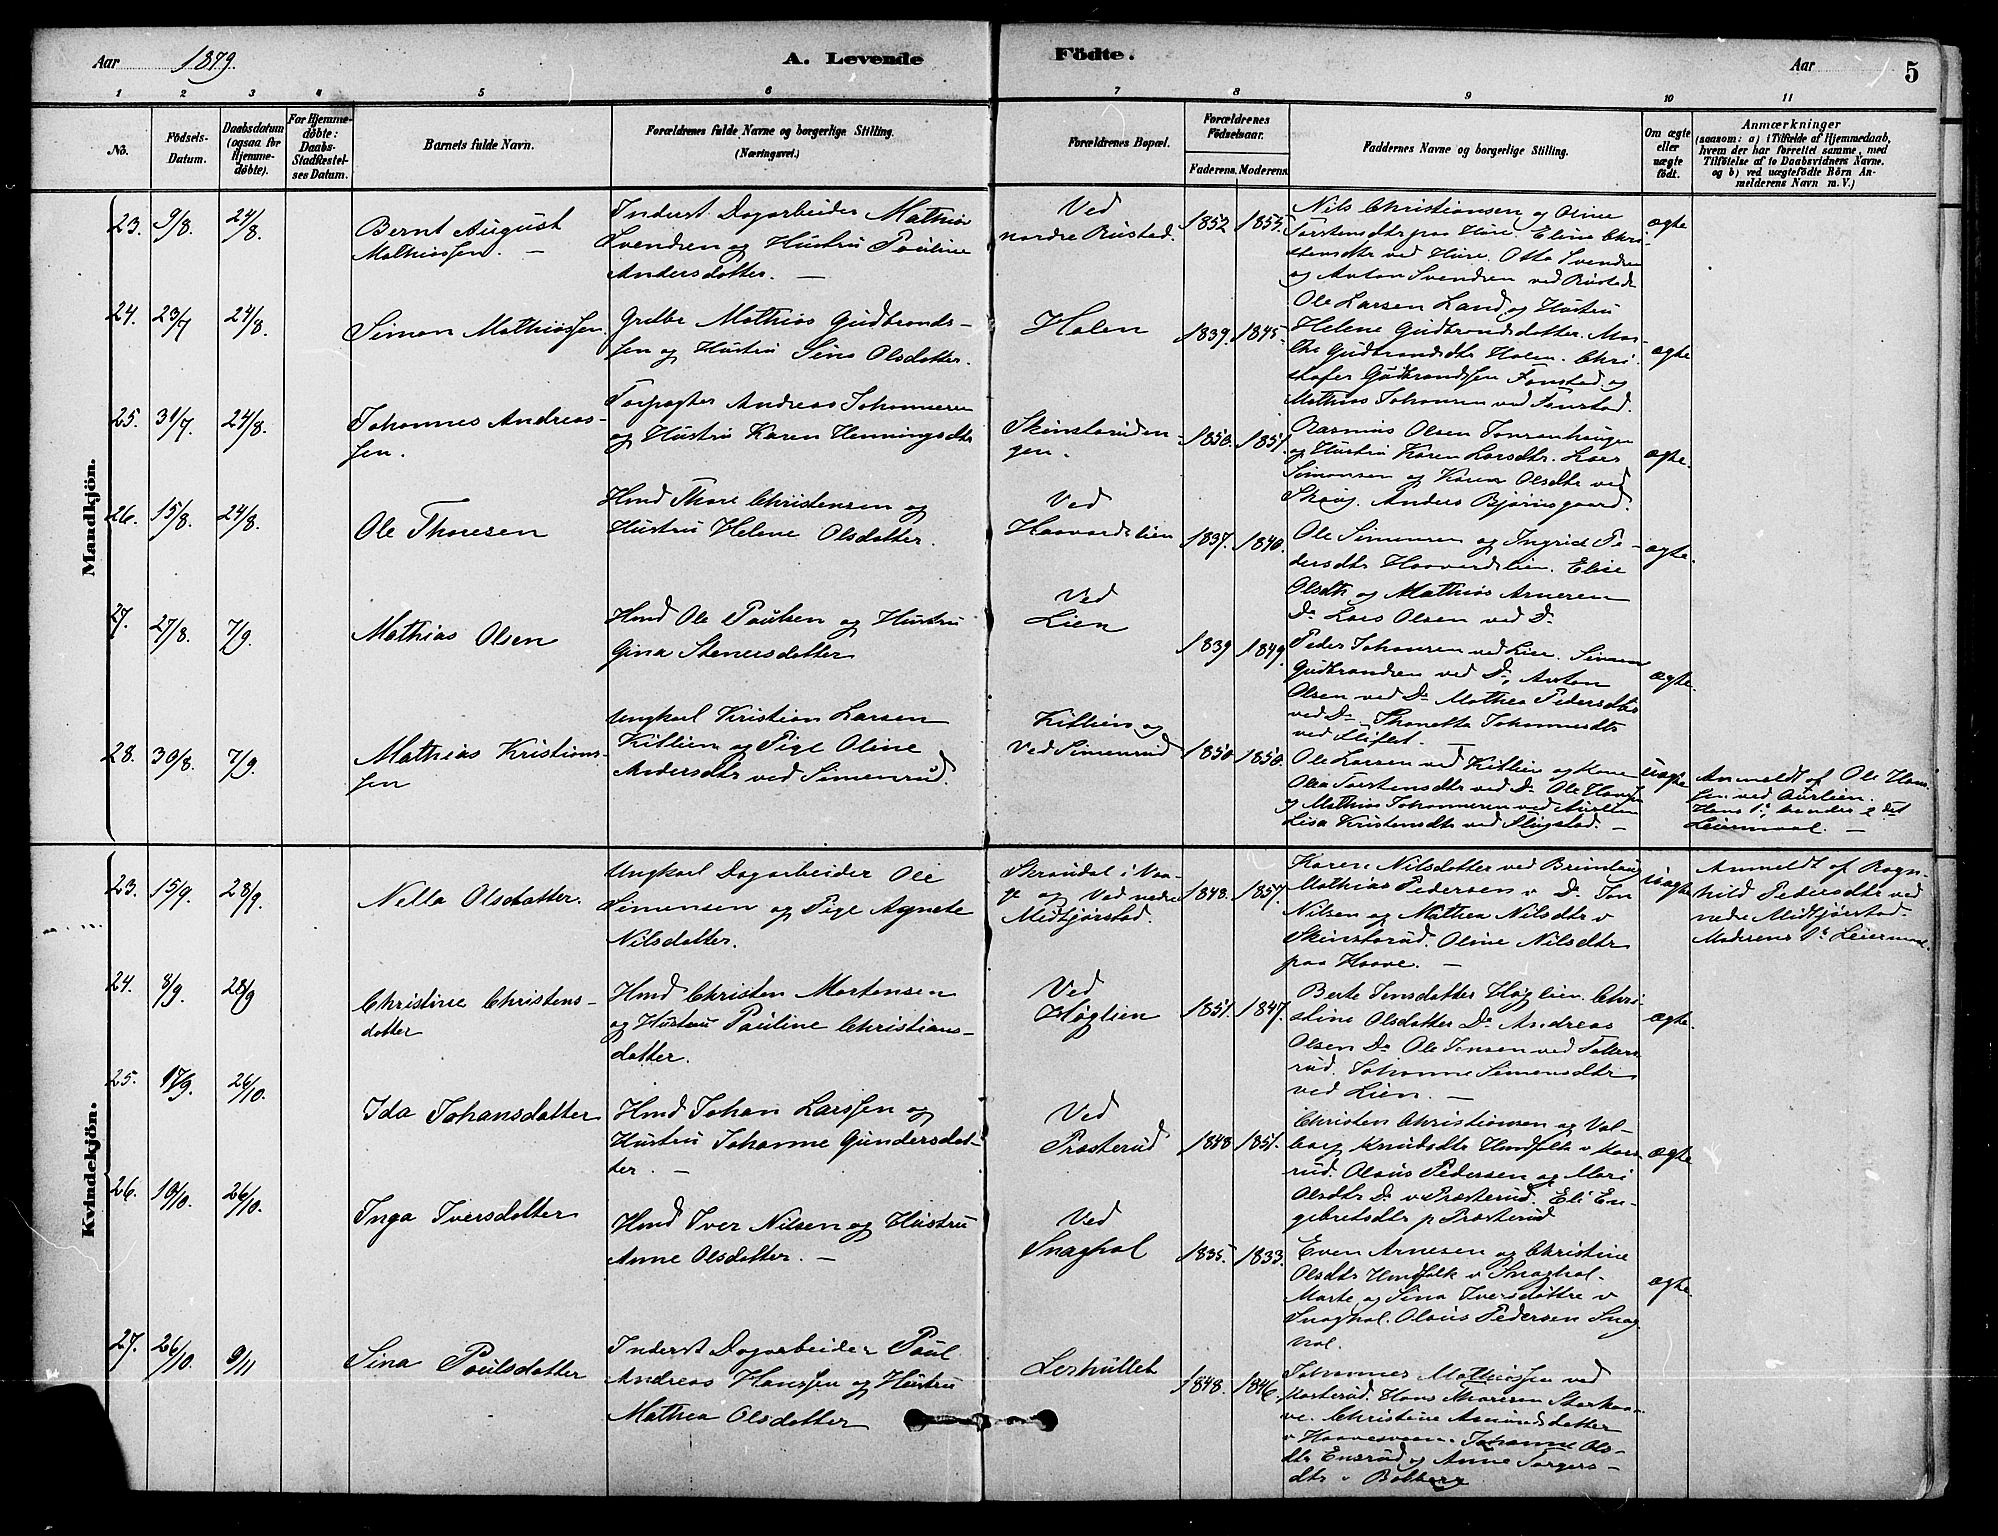 Aar 1879.
A. Levende Födte.
Aar
5
1 2 3 4 5 6 7 8 9 10 11
No.
Födsels-
Datum.
Daabsdatum
(ogsaa for
Hjemme-
döbte).
For Hjemme-
döbte:
Daabs-
Stadfæstel-
ses Datum.
Barnets fulde Navn.
Forældrenes fulde Navne og borgerlige Stilling.
(Næringsvei.)
Forældrenes Bopæl.
Forældrenes
Födselsaar.
Faderens. Moderens.
Faddernes Navne og borgerlige Stilling.
Om ægte
eller
uægte
födt.
Anmærkninger
(saasom: a) i Tilfælde af Hjemmedaab,
hvem der har forrettet samme, med
Tilföielse af to Daabsvidners Navne.
og b) ved uægtefödte Börn An-
melderens Navn m. V.)
Mandkjön.
23. 9/8. 24/8.
Bernt August
Mathiassen. —
Inderst Dagarbeider Mathias
Svendsen og Hustru Pauline
Andersdatter. —
Ved
nordre Rustad.
1852 1855.
Nils Christiansen og Oline
Torstensdtr paa Hure. Eline Chri-
stensdtr ved Hure. Otto Svendsen
og Anton Svendsen ved Rustad.
ægte
24. 23/7 24/8.
Simon Mathiassen.
Gretbr Mathias Gudbrands-
sen og Hustru Sina Olsdatter.
Holen
1839. 1845.
Ole Larsen Land og Hustru
Helene Gudbrandsdatter. Mar-
the Gudbrandsdtr Holen. Chri-
stofer Gudbrandssen Fonstad. og
Mathias Johansen ved Fonstad.
ægte
25. 31/7. 24/8.
Johannes Andreas-
sen.
Forpagter Andreas Johannesen
og Hustru Karen Henningsdtr
Skinstaduden-
gen.
1850. 1851.
Rasmus Olsen Tonsanhaugen
og Hustru Karen Larsdtr. Lars
Simonsen og Karen Olsdtr ved
Skoug. Anders Bjørnsgaard.
ægte.
26. 15/8. 24/8.
Ole Thoresen
Hmd Thore Christensen og
Hustru Helene Olsdatter.
Ved
Haavardslien
1837. 1840.
Ole Simensen og Ingrid Pe-
dersdtr Haavardslien. Elise
Olsdtr og Mathias Arnesen
Do Lars Olsen ved Do
ægte.
27. 27/8. 7/9.
Mathias Olsen
Hmd Ole Paulsen og Hustru
Gina Stenersdatter
Ved
Lien
1839 1849.
Peder Johansen ved Lien. Simen
Gudbrandsen ved Do, Anton
Olsen ved Do Mathea Pedersdtr
ved Do Thonetta Johannesdtr
ved —
ægte.
28. 30/8. 7/9.
Mathias Kristians-
sen
Ungkarl Kristian Larsen
Kitlien og Pige Oline
Andersdtr ved Simenrud.
Kitlien og
Ved Simenrud
1850 1850.
Ole Larsen ved Kitlien og Kone
Olea Torstensdtr ved Do Ole Hansen
og Mathias Johannesen ved Aurlien
Lisa Kristensdtr ved Slugstad. —
uægte
Anmeldt af Ole Han-
sen ved Aurlien.
Hans 1ste hendes 2det
Leiermaal. —
Kvindekjön.
23. 15/9. 28/9.
Nella Olsdatter.
Ungkarl Dagarbeider Ole
Simensen og Pige Agnete
Nilsdatter.
Skrøndal i Vaa-
ge og Ved nedre
Midtgjørstad.
1848. 1857.
Karen Nilsdatter ved Brimhaug
Mathias Pedersen v Do. Jon
Nilsen og Mathea Nilsdtr v
Skinstarud. Oline Nilsdtr
paa Haave. —
uægte
Anmeldt af Ragn-
hild Pedersdtr ved
nedre Midtgjørstad.
Moderens 1ste Leiermaal.
24. 8/9. 28/9
Christine Christens-
datter
Hmd Christen Mortensen
og Hustru Pauline Christians-
datter.
Ved
Høglien
1851. 1847.
Berte Jensdatter Høglien. Chri-
stine Olsdatter Do Andreas
Olsen Do Ole Jensen ved Tokers-
rud. Johanne Simensdtr
ved Lien. —
ægte.
25. 17/9. 26/10.
Ida Johansdatter
Hmd Johan Larssen og
Hustru Johanne Gundersdat-
ter. —
Ved
Prosterud
1848 1851.
Christen Christiansen og Val-
borg Knudsdtr Hmdfolk v Kors-
rud. Olaus Pedersen og Mari
Olsdtr Do v Prosterud. Eli En-
gebretsdtr p Prosterud
ægte
26. 10/10. 26/10.
Inga Iversdatter
Hmd Iver Nilsen og Hustru
Anne Olsdatter. —
Ved
Snaghol
1835. 1833.
Even Arnesen og Christine
Olsdtr Hmdfolk v Snaghol.
Marte og Sina Iversdøttre v
Snaghol. Olaus Pedersen Snag-
hol.
ægte.
27. 26/10. 9/11
Sina Paulsdatter
Inderst Dagarbeider Paul
Andreas Hanssen og Hustru
Mathea Olsdatter
Lerhullet
1848. 1846.
Johannes Mathiassen ved
Korterud. Hans Thoresen Storhaa-
ve. Christine Amundsdatter
v Haavesveen. Johanne Ols-
dtr Ensrud og Anne Torgers-
dtr v Botberg